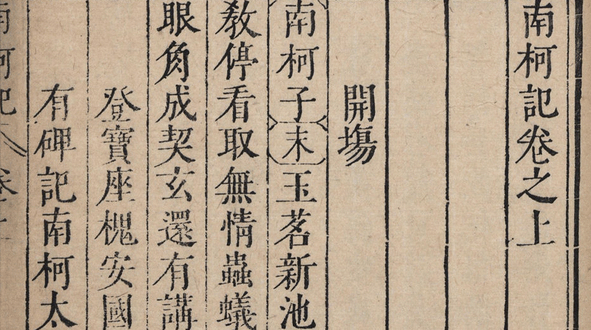 南柯記卷之上
開塲
南柯子末玉茗新池
教停看取無情蟲蟻
眼角成契玄還有講
登寶座槐安國
有碑記南柯太
南柯記卷上